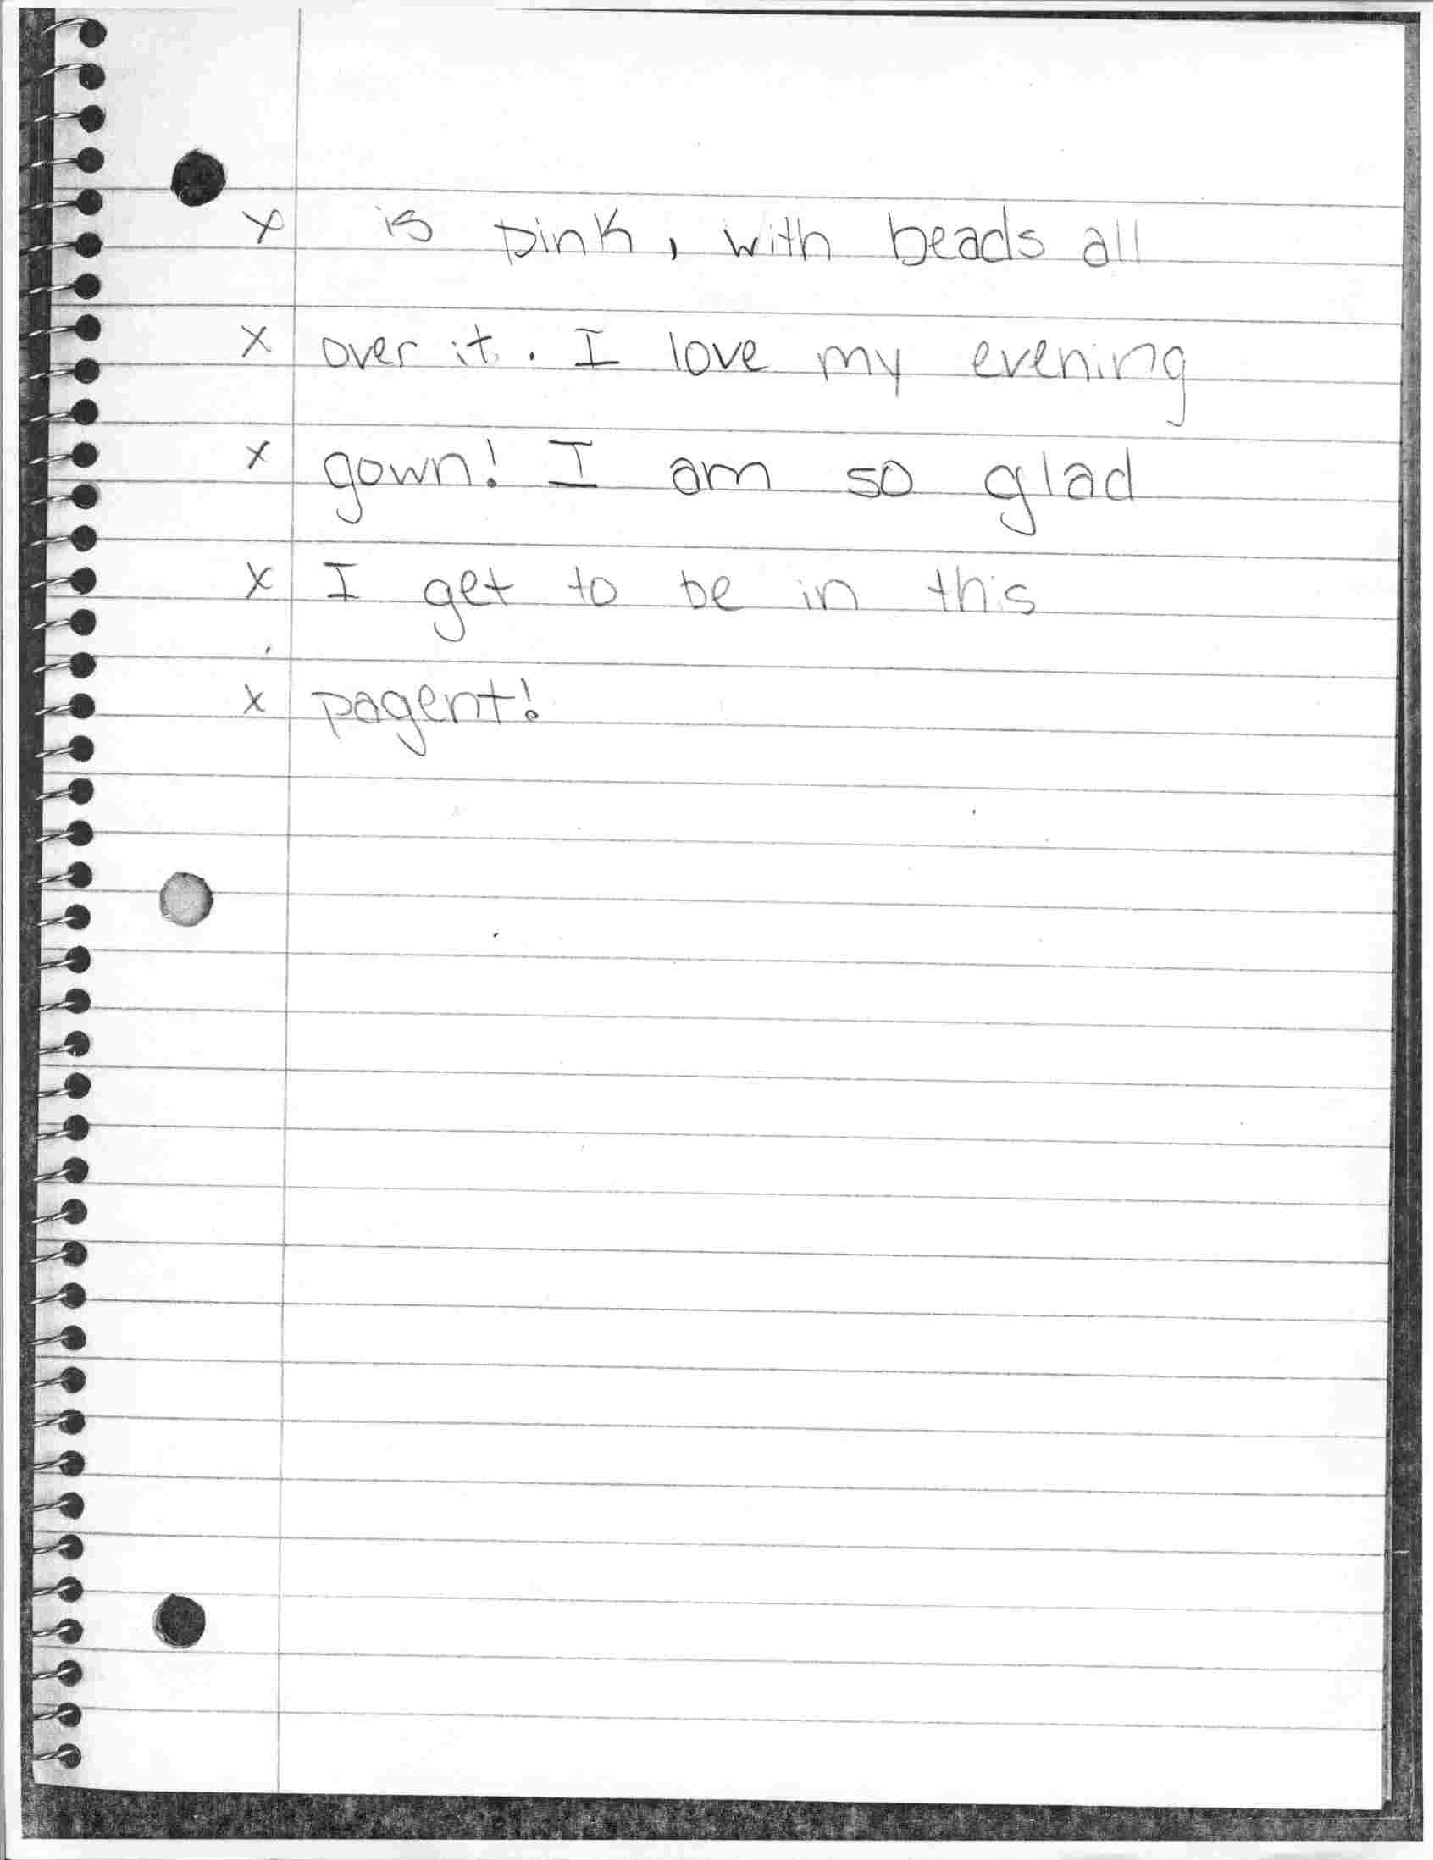 x is pink, with beads all
x over it. I love my evening
x gown! I am so glad
x I get to be in this
x pagent!